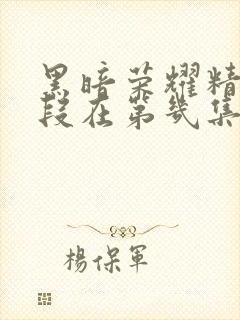 黑暗荣耀精
段在第几集
杨保军